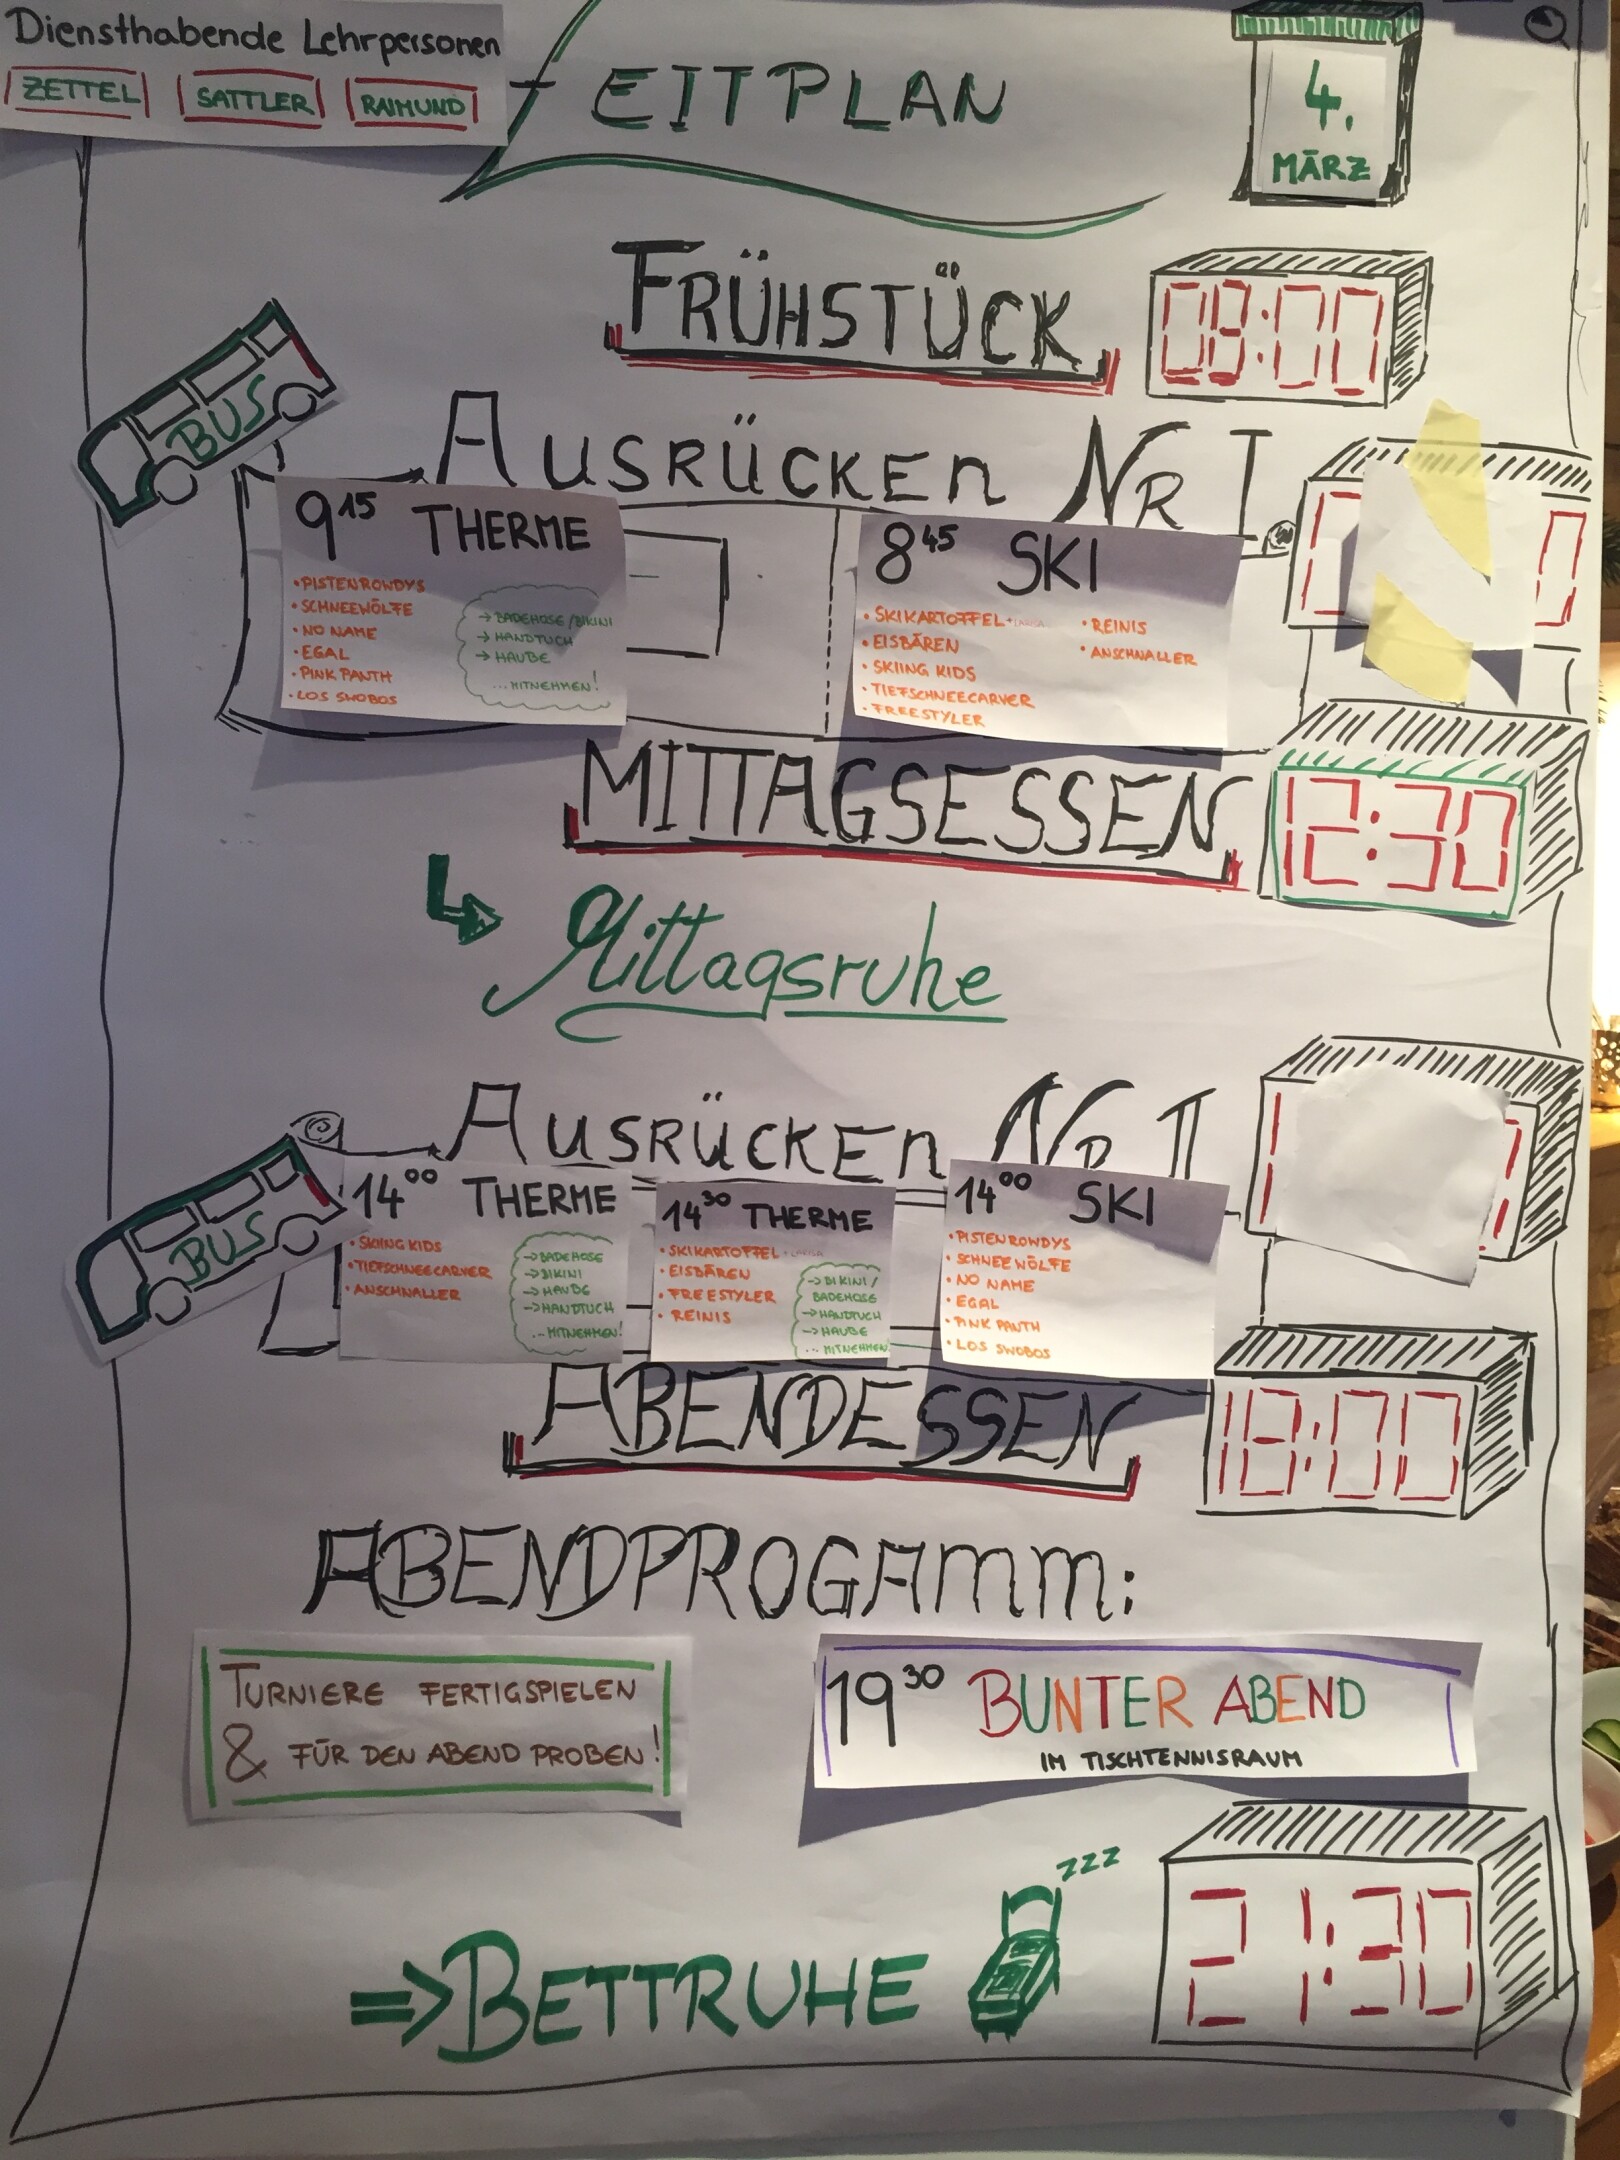 Diensthabende Lehrpersonen
ZETTEL SATTLER RAIMUND
ZEITPLAN
4.
MÄRZ
FRÜHSTÜCK 08:00
BUS
AUSRÜCKEN NR I
9 15 THERME
• PISTENROWDYS
• SCHNEEWÖLFE
• NO NAME
• EGAL
• PINK PANTH
• LOS SWOBOS
→ BADEHOSE / BIKINI
→ HANDTUCH
→ HAUBE
... MITNEHMEN!
8 45 SKI
• SKIKARTOFFEL
• EISBÄREN
• SKIING KIDS
• TIEFSCHNEECARVER
• FREESTYLER
• REINIS
• ANSCHNALLER
MITTAGSESSEN 12:30
Mittagsruhe
AUSRÜCKEN NR II
BUS
14 00 THERME
• SKIING KIDS
• TIEFSCHNEECARVER
• ANSCHNALLER
→ BADEHOSE
→ BIKINI
→ HAUBE
→ HANDTUCH
... MITNEHMEN!
14 30 THERME
• SKIKARTOFFEL
• EISBÄREN
• FREESTYLER
• REINIS
→ BIKINI /
BADEHOSE
→ HANDTUCH
→ HAUBE
... MITNEHMEN
14 00 SKI
• PISTENROWDYS
• SCHNEEWÖLFE
• NO NAME
• EGAL
• PINK PANTH
• LOS SWOBOS
ABENDESSEN 18:00
ABENDPROGAMM:
TURNIERE FERTIGSPIELEN
& FÜR DEN ABEND PROBEN!
19 30 BUNTER ABEND
IM TISCHTENNISRAUM
zzz
=> BETTRUHE 21:30